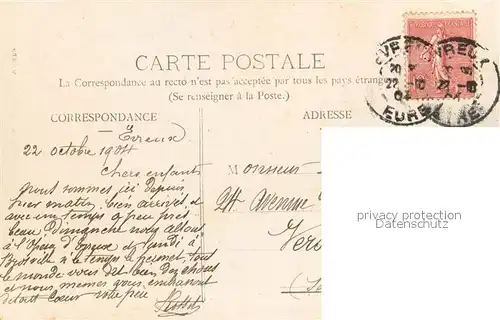 CARTE POSTALE
La Correspondance au recto n'est pas acceptée par tous les pays étrang
(Se renseigner à la Poste.)
CORRESPONDANCE
ADRESSE
EURE
Evreux
22 octobre 1904
Chers enfants
nous sommes ici depuis
hier matin bien arrivés,
avec un temps à peu près
beau. Dimanche nous allons
à
lundi à
si le temps le permet, tout
le monde vous dit bien des choses
et nous mêmes vous embrassent
de tout Coeur votre père
Monsieur
24 Avenue
Ver
(Se
privacy protection
Datenschutz